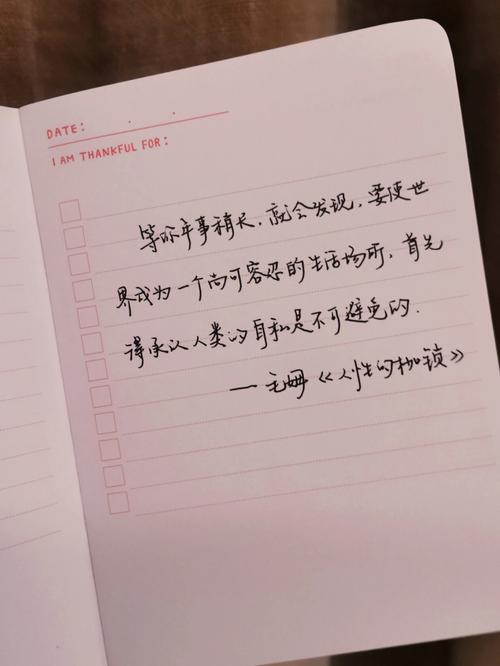 DATE:
I AM THANKFUL FOR:
等你年事稍长,就会发现,要使世
界成为一个尚可容忍的生活场所,首先
得承认人类的自私是不可避免的.
—毛姆《人性的枷锁》